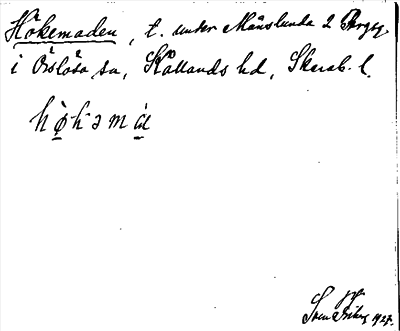 Hökemaden, t. under Månslunda 2 Bergsg.
i Örslösa sn, Kållands hd, Skarab. l.
hø̀kəmà
Sven 1927.